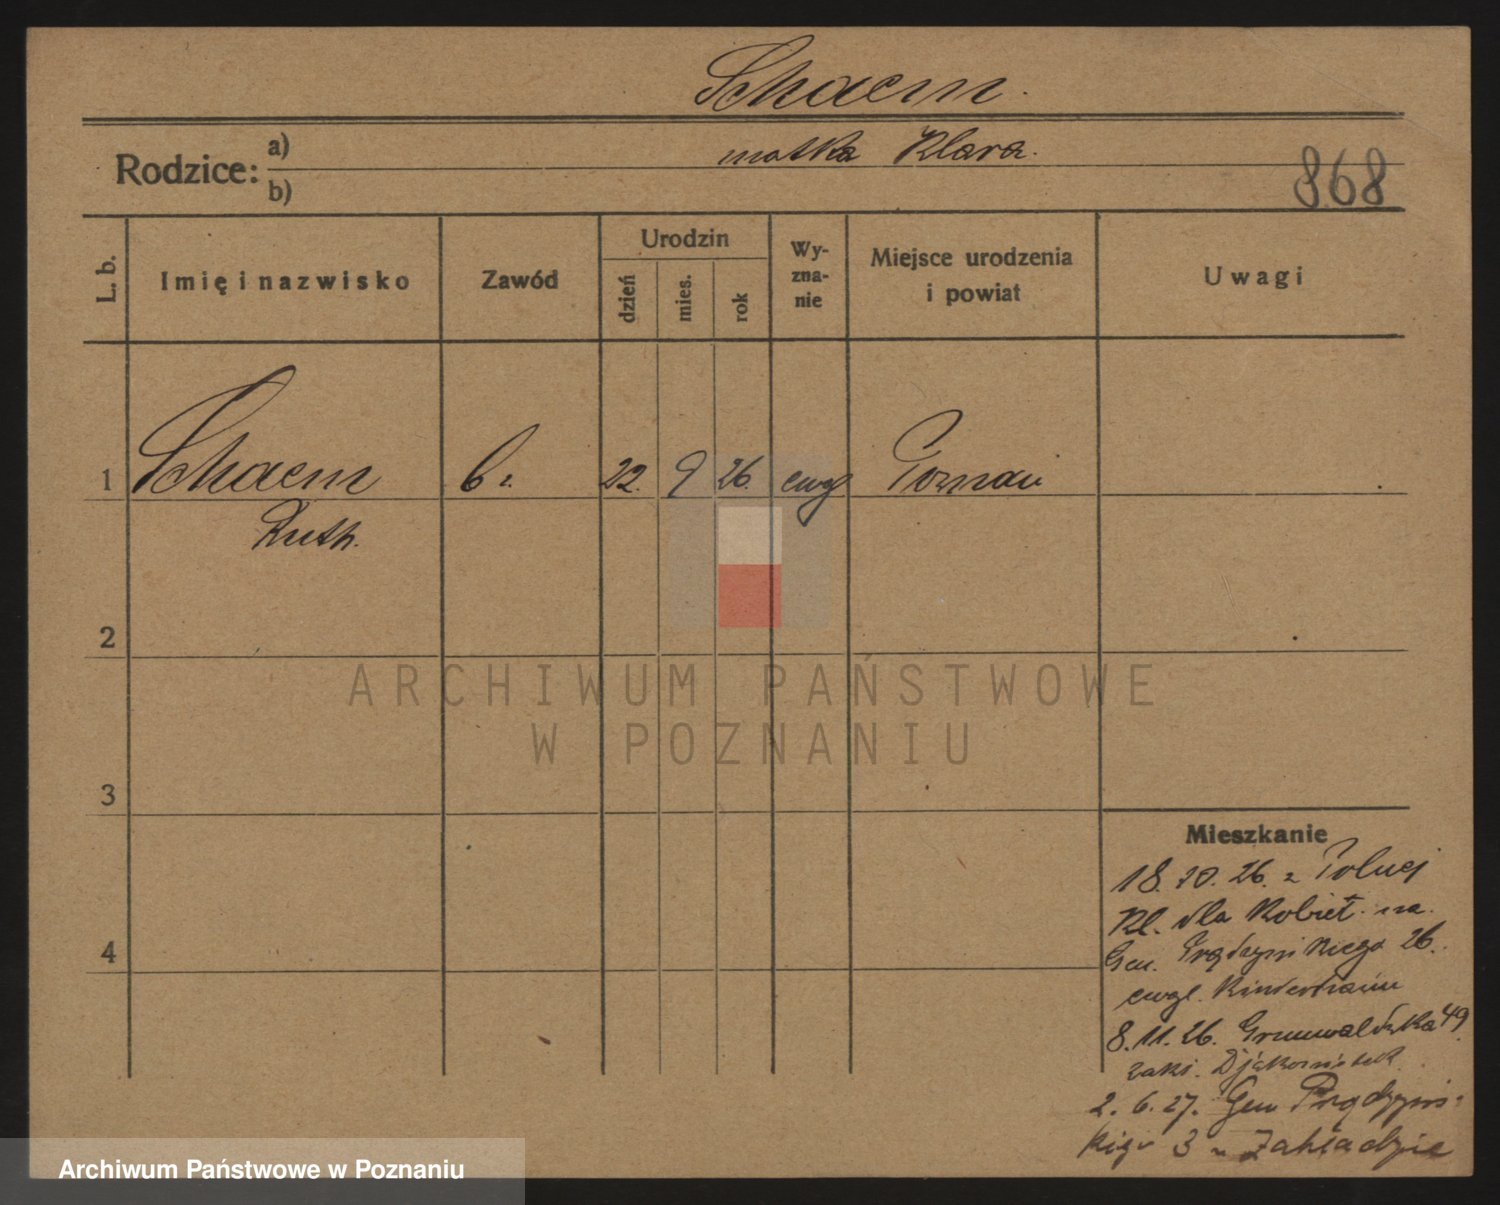 Schaem.
Rodzice: a) matka Klara.
b)
868
L. b.
Imię i nazwisko
Zawód
Urodzin
dzień
mies.
rok
Wy-
zna-
nie
Miejsce urodzenia
i powiat
Uwagi
1 Schaem b. 22. 9 26. ewgl Poznań
Ruth.
2
ARCHIWUM PAŃSTWOWE
W POZNANIU
3
Mieszkanie
18. 10. 26. z
Kl. dla Kobiet. na.
4
Gen. Prądzyńskiego 26.
ewgl.
8.11.26. Grunwaldzka 49
2. 6. 27. Gen Prądzyńs-
kiego 3 w Zakładzie
Archiwum Państwowe w Poznaniu